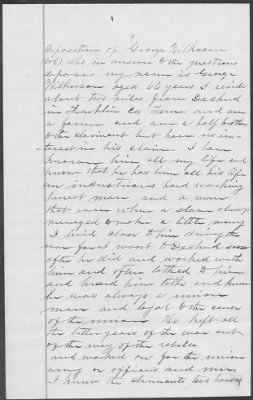 Deposition of George Wilkerson
(col) who in answer to the questions
deposes my name is George
Wilkerson aged 66 years I reside
about two miles from Decherd
in Franklin Co Tenn and am
a farmer and am a half brother
to the claimant but have no in-
terest in his claim I have
known him all my life and
know that he has been all his life
an industrious hard working
honest man and a man
that even when a slave always
managed to make a little money
I lived close to him during the
war for I went to Decherd soon
after he did and worked with
him and often talked to him
and heard him talk and know
he was always a union
man and loyal to the cause
of the union He kept all
the latter years of the war out
of the way of the rebels
and worked on for the union
army or officers and men
I know the claimants two horses